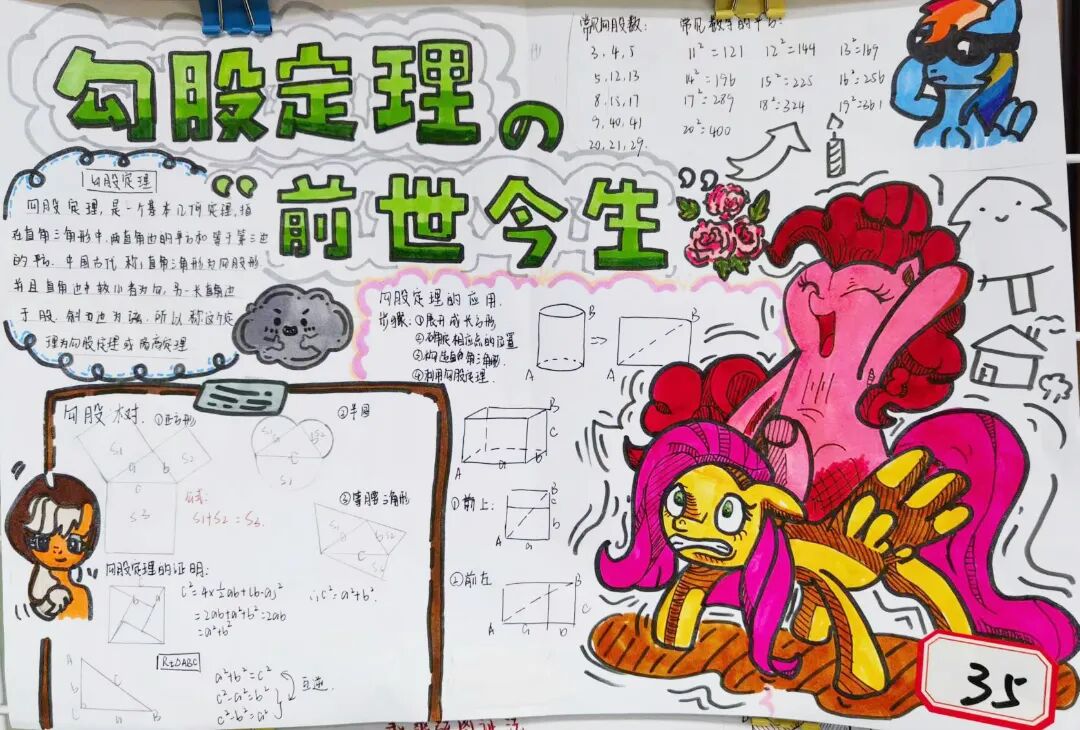 勾股定理の
“前世今生”
常见勾股数:
3,4,5
5,12,13
8,15,17
9,40,41
20,21,29.
常见数字的平方:
11²=121 12²=144 13²=169
14²=196 15²=225 16²=256
17²=289 18²=324 19²=361
20²=400
勾股定理
勾股定理,是一个基本几何定理,指
在直角三角形中,两直角边的平方和等于第三边
的平方.中国古代称直角三角形为勾股形
并且直角边中较小者为勾,另一长直角边
为股,斜边为弦,所以称这个定
理为勾股定理或商高定理
勾股定理的应用:
步骤:①展开成长方形
②确定相应点的位置
③构造直角三角形
④利用勾股定理.
B
A
B
A
B
C
A
a
b
①前上:
B
c
b
A
a
②前左
B
C
A
a
b
勾股树.①正方形
S1
S2
a
b
c
S3
公式:
S1+S2=S3
②半圆
S1
S2
C
S3
③等腰三角形
S1
a
b
S2
C
S3
勾股定理的证明:
b
a
c²=4×½ab+(b-a)²
=2ab+a²+b²-2ab
=a²+b²
∴c²=a²+b².
Rt△ABC
A
b
c
C
a
B
a²+b²=c²
c²-a²=b²
c²-b²=a²
互逆
35